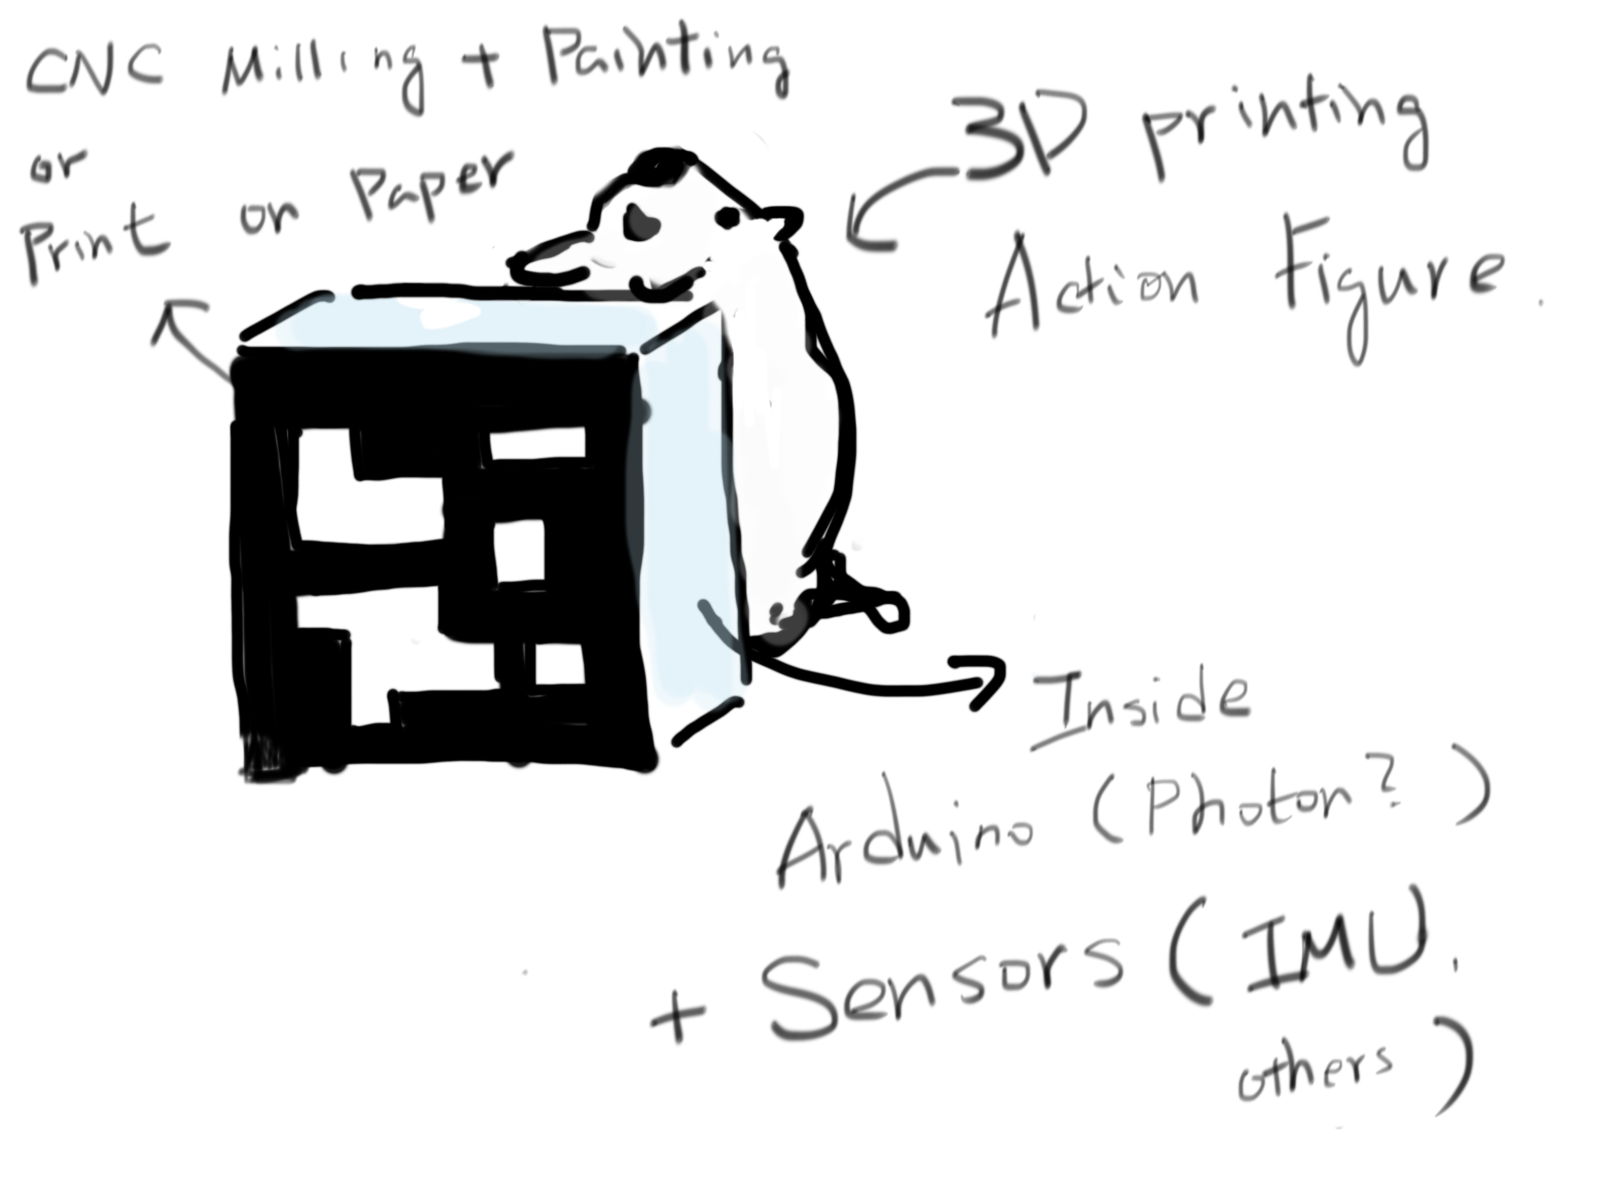 CNC Milling + Painting
or
Print on Paper
3D printing
Action Figure.
Inside
Arduino (Photon?)
+ Sensors (IMU,
others)